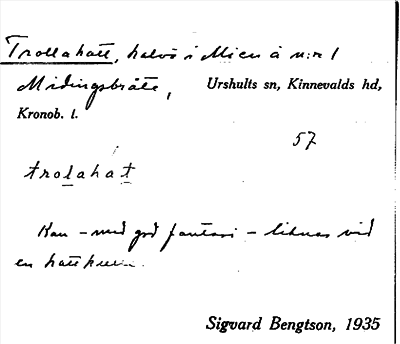 Trollahatt, halvö i Mien å n:r 1
Midingsbråte, Urshults sn, Kinnevalds hd,
Kronob. l.
57
trolahat
Kan – med god fantasi – liknas vid
en hatt
Sigvard Bengtson, 1935